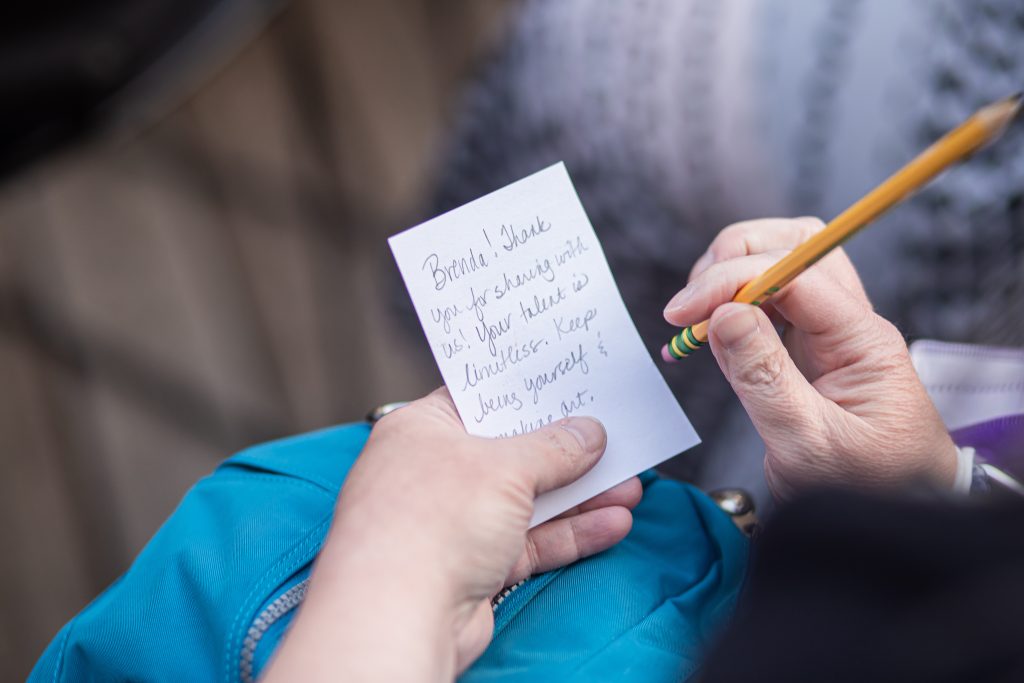 Brenda! Thank
you for sharing with
us! Your talent is
limitless. Keep
being yourself &
making art.